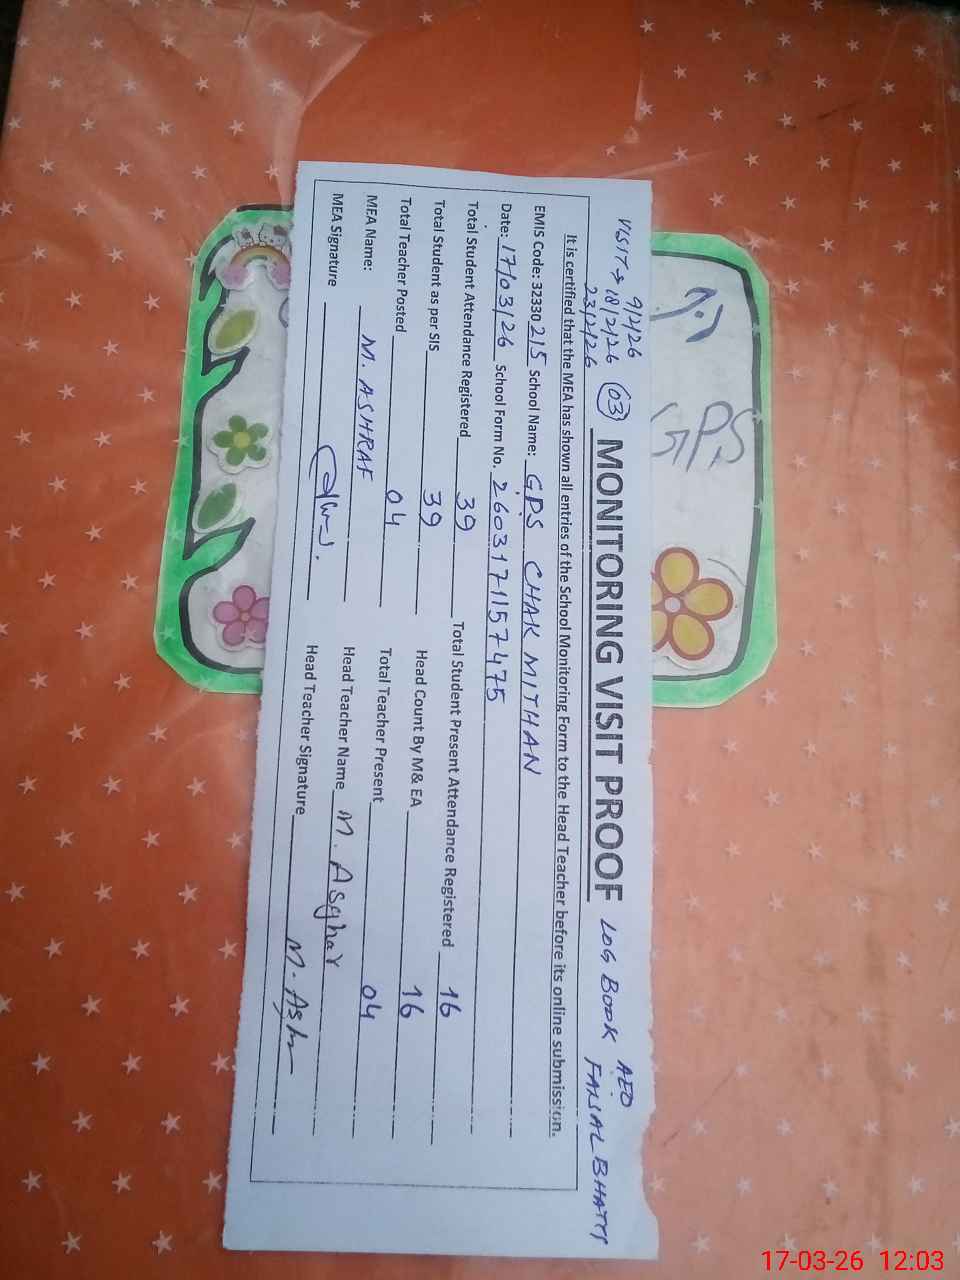 9/2/26
VISIT → 18/2/26 03
23/2/26
MONITORING VISIT PROOF
LOG BOOK AEO
FAISAL BHATTI
It is certified that the MEA has shown all entries of the School Monitoring Form to the Head Teacher before its online submission.
EMIS Code: 32330 215 School Name: GPS CHAK MITHAN
Date: 17/03/26 School Form No. 260317115 7475
Total Student Attendance Registered 39 Total Student Present Attendance Registered 16
Total Student as per SIS 39 Head Count By M& EA 16
Total Teacher Posted 04 Total Teacher Present 04
MEA Name: M. ASHRAF Head Teacher Name M. Asghar
MEA Signature Head Teacher Signature M. Ash
GPS
17-03-26 12:03